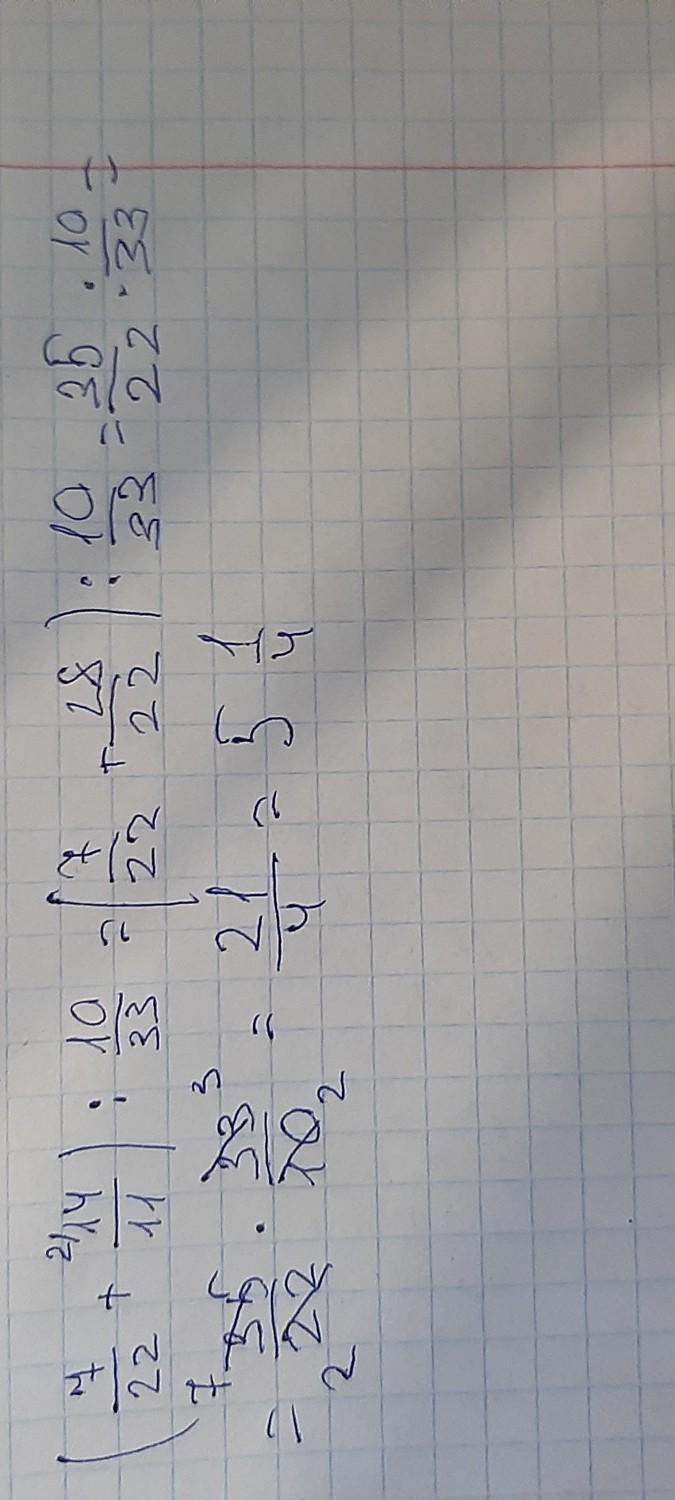 (7/22 + 2/14/11) : 10/33 = (7/22 + 28/22) : 10/33 = 35/22 : 10/33 =
= 7 35/22 2 · 33 3/10 2 = 21/4 = 5 1/4